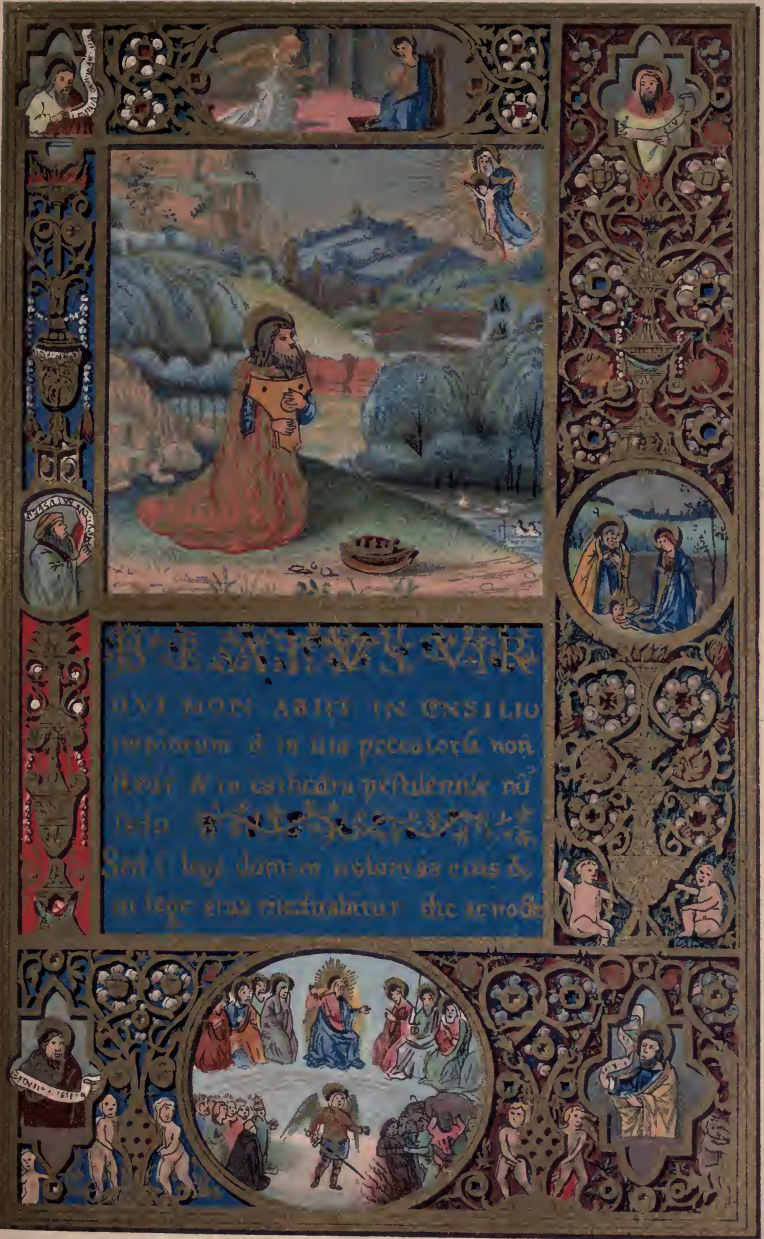 BEATVS VIR
QVI NON ABIIT IN CNSILIO
impiorum & in uia peccatorũ non
stetit & in cathedra pestilentiæ nõ
sedit
Sed ĩ lege domini uoluntas eius &
in lege eius meditabitur die ac nocte